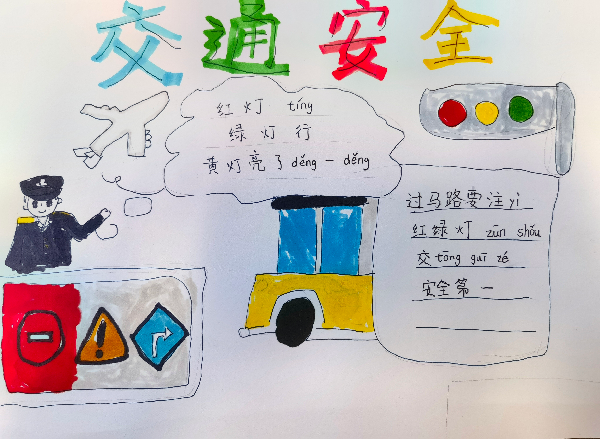 交通安全
红灯 tíng
绿灯行
黄灯亮了děng一děng
过马路要注yì
红绿灯 zūn shǒu
交tōng guī zé
安全第一